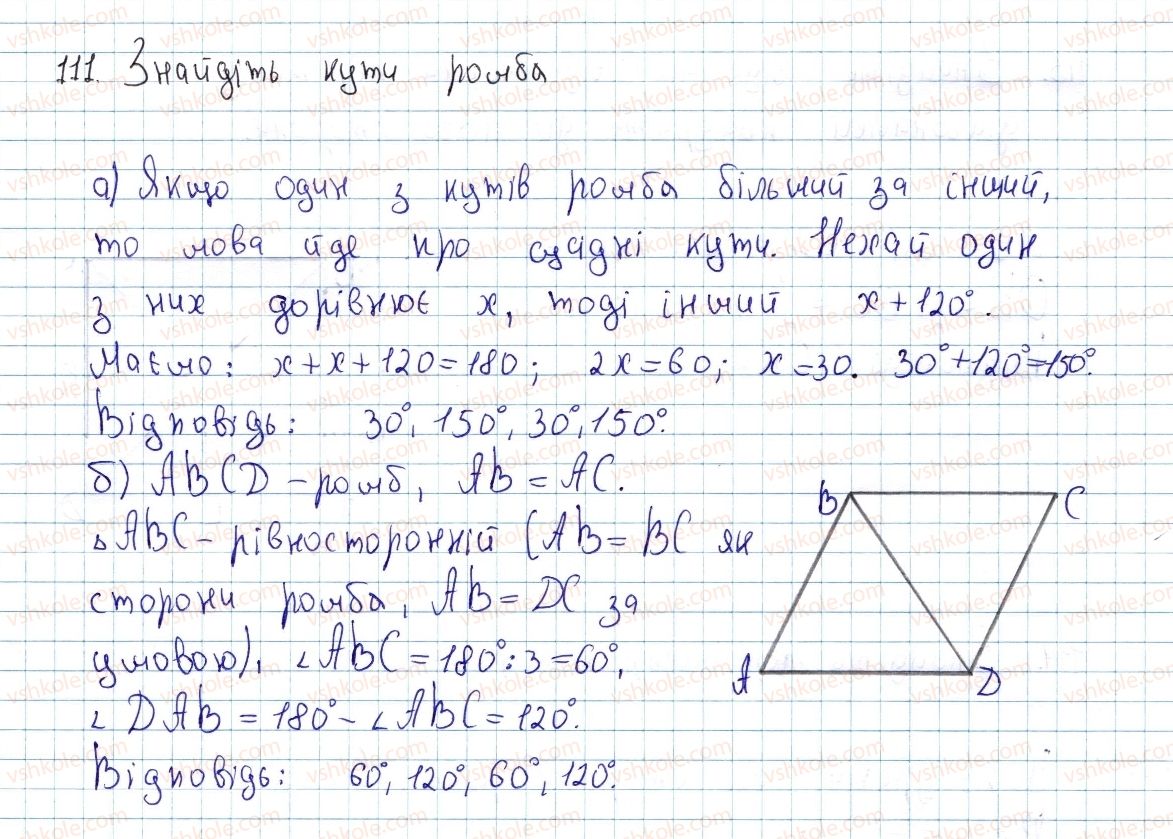 111. Знайдіть кути ромба
а) Якщо один з кутів ромба більший за інший,
то мова йде про сусідні кути. Нехай один
з них дорівнює x, тоді інший x + 120°.
Маємо: x + x + 120 = 180; 2x = 60; x = 30. 30° + 120° = 150°.
Відповідь: 30°, 150°, 30°, 150°.
б) ABCD – ромб, AB = AC.
△ABC – рівносторонній (AB = BC як
сторони ромба, AB = DC за
умовою), ∠ABC = 180° : 3 = 60°,
∠DAB = 180° – ∠ABC = 120°.
Відповідь: 60°, 120°, 60°, 120°.
B
C
A
D
vshkole.com